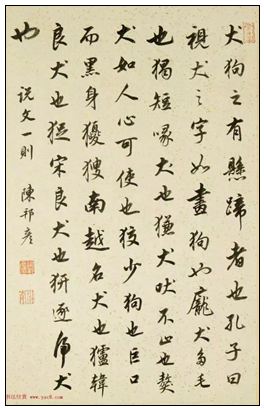 犬狗之有懸蹄者也孔子曰
視犬之字如畫狗也龐犬多毛
也猲短喙犬也獫犬吠不止也獒
犬如人心可使也狡少狗也巨口
而黑身獿獀南越名犬也獹韓
良犬也宋良犬也逐虎犬
也
說文一則 陳邦彥
书法欣赏 www.yac8.com